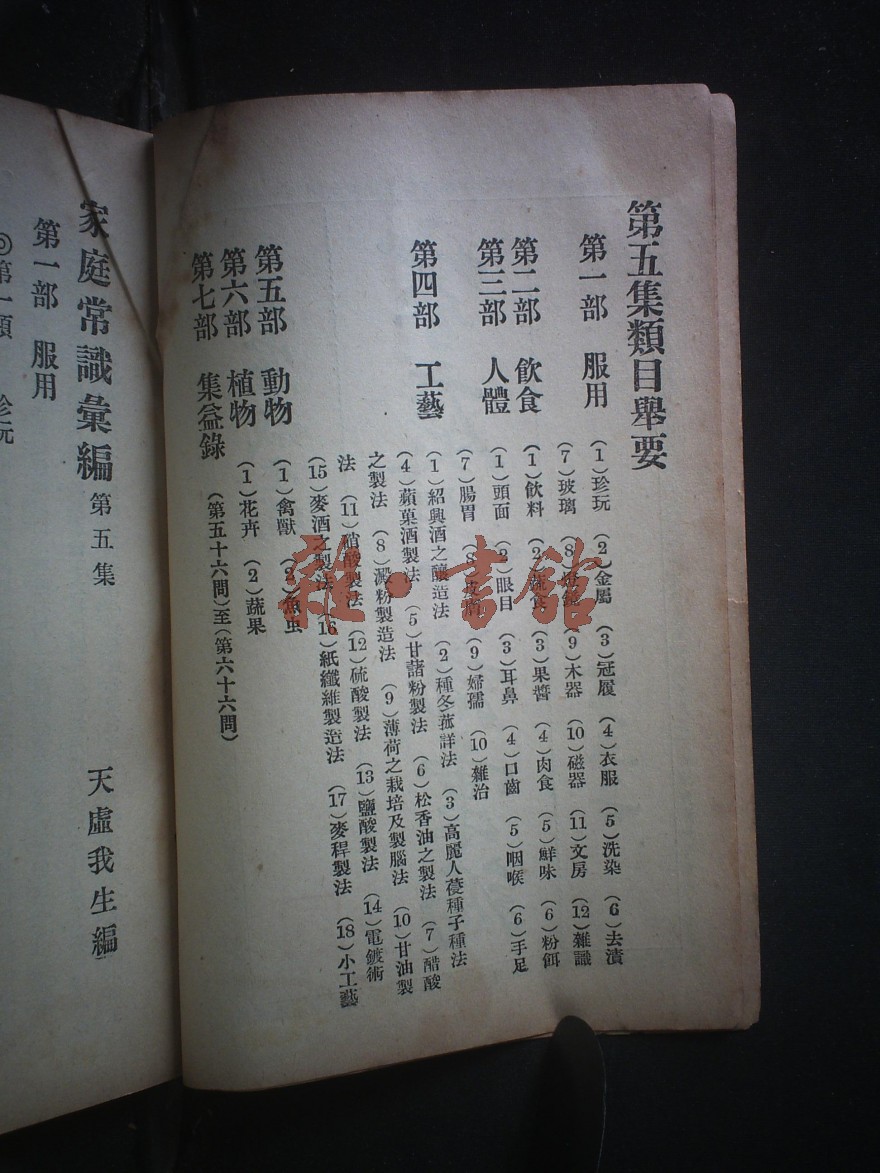 第五集類目舉要
第一部 服用
(1)珍玩 (2)金屬 (3)冠履 (4)衣服 (5)洗染 (6)去漬
(7)玻璃 (8)燈鏡 (9)木器 (10)磁器 (11)文房 (12)雜識
第二部 飲食
(1)飲料 (2)蔬食 (3)果醬 (4)肉食 (5)鮮味 (6)粉餌
第三部 人體
(1)頭面 (2)眼目 (3)耳鼻 (4)口齒 (5)咽喉 (6)手足
(7)腸胃 (8)皮膚 (9)婦孺 (10)雜治
第四部 工藝
(1)紹興酒之釀造法 (2)種冬菰詳法 (3)高麗人薓種子種法
(4)蘋菓酒製法 (5)甘藷粉製法 (6)松香油之製法 (7)醋酸
之製法 (8)澱粉製造法 (9)薄荷之栽培及製腦法 (10)甘油製
法 (11)硝酸製法 (12)硫酸製法 (13)鹽酸製法 (14)電鍍術
(15)麥酒之製法 (16)紙纖維製造法 (17)麥稈製法 (18)小工藝
第五部 動物
(1)禽獸 (2)魚虫
第六部 植物
(1)花卉 (2)蔬果
第七部 集益錄
(第五十六問)至(第六十六問)
家庭常識彙編 第五集 天虛我生編
第一部 服用
◎第一類 珍玩
雜·書館